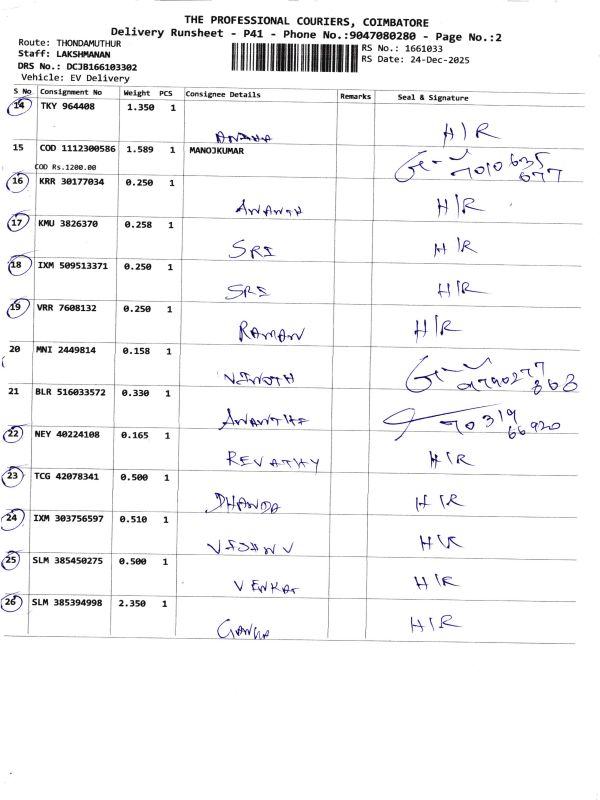 THE PROFESSIONAL COURIERS, COIMBATORE
Delivery Runsheet - P41 - Phone No.:9047080280 - Page No.:2
Route: THONDAMUTHUR
Staff: LAKSHMANAN
DRS No.: DCJB166103302
Vehicle: EV Delivery
RS No.: 1661033
RS Date: 24-Dec-2025
S No Consignment No Weight PCS Consignee Details Remarks Seal & Signature
14 TKY 964408 1.350 1 H/R
15 COD 1112300586 1.589 1 MANOJKUMAR
COD Rs.1200.00
7010 635
677
16 KRR 30177034 0.250 1 ANANTH H/R
17 KMU 3826370 0.258 1 SRI H/R
18 IXM 509513371 0.250 1 SRI H/R
19 VRR 7608132 0.250 1 RAMAN H/R
20 MNI 2449814 0.158 1 VINOTH
21 BLR 516033572 0.330 1 70319
66920
22 NEY 40224108 0.165 1 REVATHY H/R
23 TCG 42078341 0.500 1 DHANDA H/R
24 IXM 303756597 0.510 1 H/R
25 SLM 385450275 0.500 1 VENKAT H/R
26 SLM 385394998 2.350 1 GANGA H/R